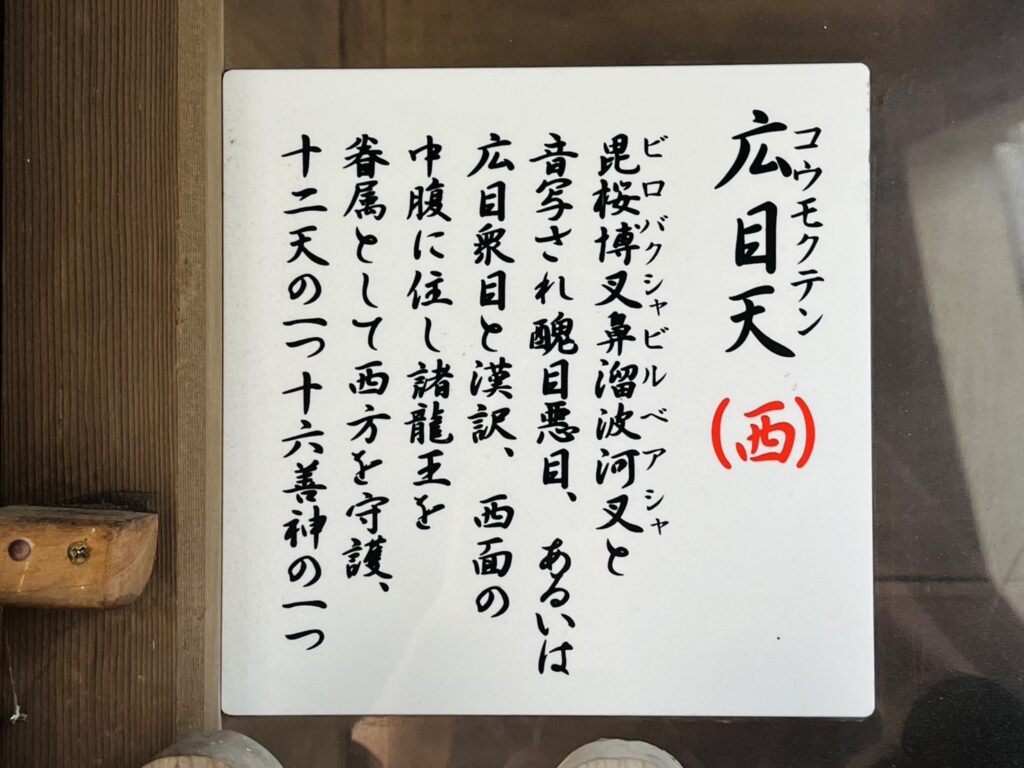 広目天(西)
コウモクテン
毘桜博叉鼻溜波河叉と
ビロバクシャビルベアシャ
音写され醜目悪目、あるいは
広目衆目と漢訳、西面の
中腹に住し諸龍王を
眷属として西方を守護、
十二天の一つ十六善神の一つ